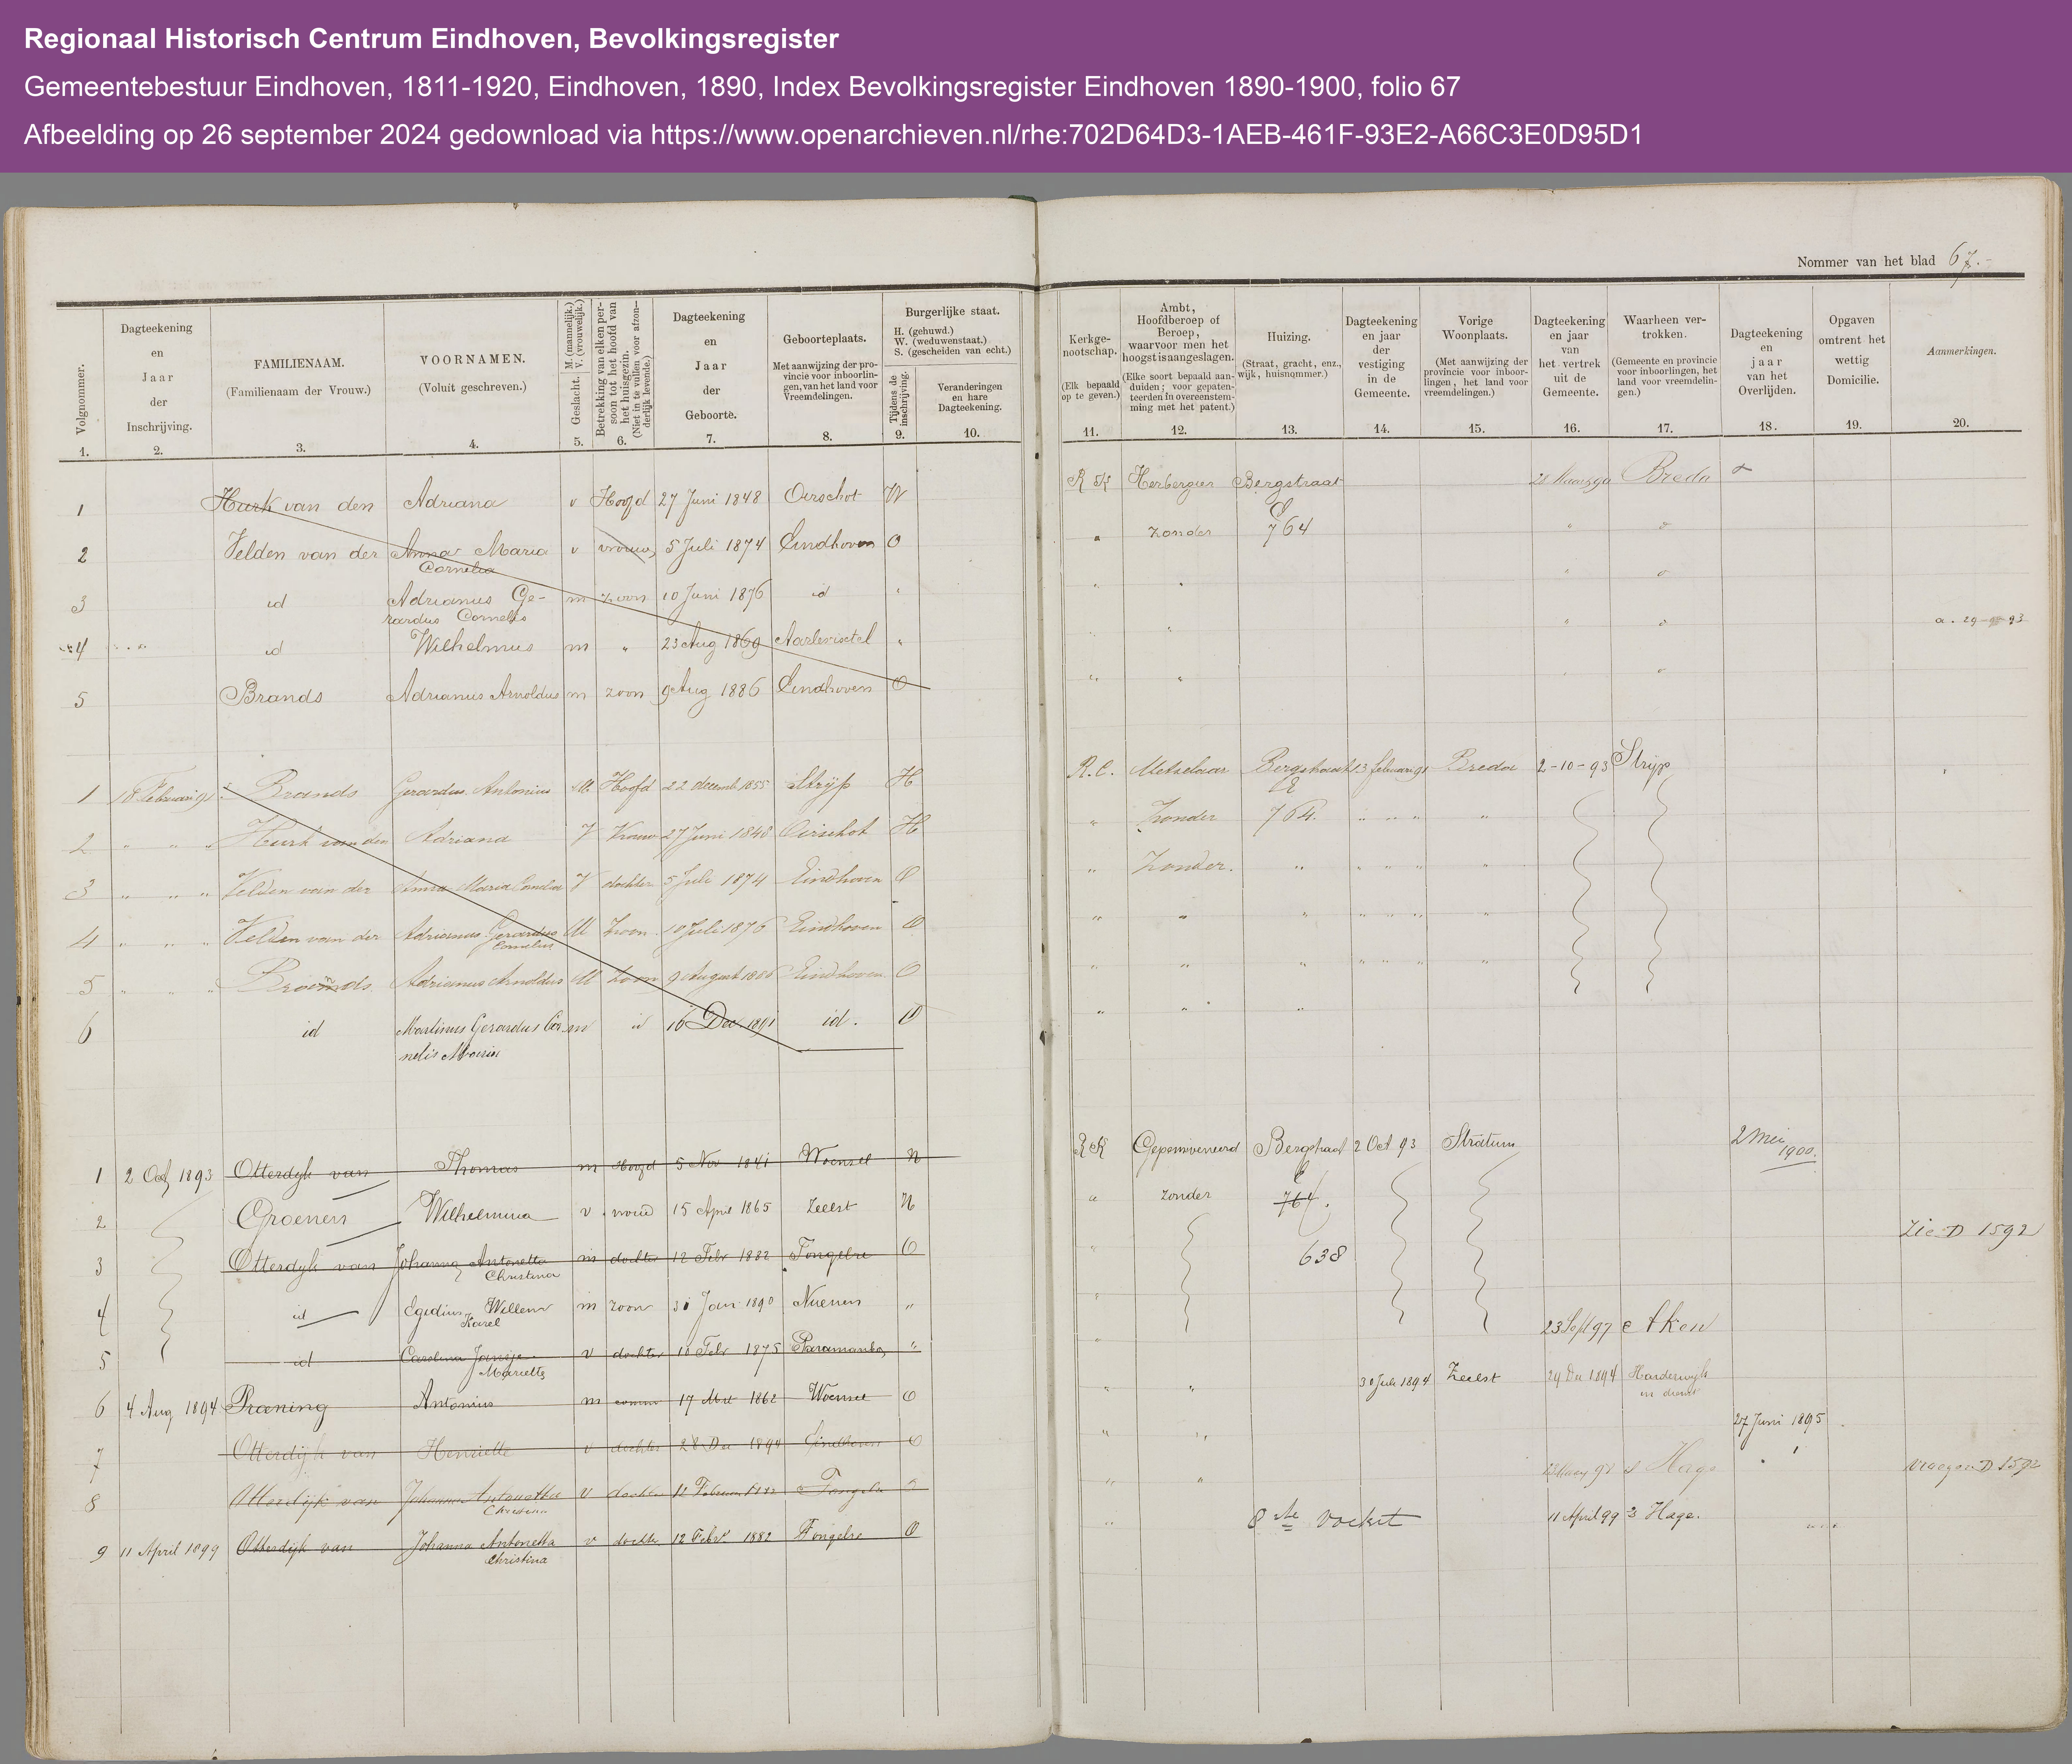 Regionaal Historisch Centrum Eindhoven, Bevolkingsregister
Gemeentebestuur Eindhoven, 1811-1920, Eindhoven, 1890, Index Bevolkingsregister Eindhoven 1890-1900, folio 67
Afbeelding op 26 september 2024 gedownload via https://www.openarchieven.nl/rhe:702D64D3-1AEB-461F-93E2-A66C3E0D95D1
Nommer van het blad 67.-
Volgnommer. 1.
Dagteekening en Jaar der Inschrijving. 2.
FAMILIENAAM. (Familienaam der Vrouw.) 3.
VOORNAMEN. (Voluit geschreven.) 4.
Geslacht. M. (mannelijk.) V. (vrouwelijk.) 5.
Betrekking van elken persoon tot het hoofd van het huisgezin. (Niet in te vullen voor afzonderlijk levende.) 6.
Dagteekening en Jaar der Geboorte. 7.
Geboorteplaats. Met aanwijzing der provincie voor inboorlingen, van het land voor Vreemdelingen. 8.
Burgerlijke staat. H. (gehuwd.) W. (weduwenstaat.) S. (gescheiden van echt.)
Tijdens de inschrijving. 9.
Veranderingen en hare Dagteekening. 10.
Kerkgenootschap. (Elk bepaald op te geven.) 11.
Ambt, Hoofdberoep of Beroep, waarvoor men het hoogst is aangeslagen. (Elke soort bepaald aanduiden; voor gepatenteerden in overeenstemming met het patent.) 12.
Huizing. (Straat, gracht, enz., wijk, huisnommer.) 13.
Dagteekening en jaar der vestiging in de Gemeente. 14.
Vorige Woonplaats. (Met aanwijzing der provincie voor inboorlingen, het land voor vreemdelingen.) 15.
Dagteekening en jaar van het vertrek uit de Gemeente. 16.
Waarheen vertrokken. (Gemeente en provincie voor inboorlingen, het land voor vreemdelingen.) 17.
Dagteekening en jaar van het Overlijden. 18.
Opgaven omtrent het wettig Domicilie. 19.
Aanmerkingen. 20.
1 Hurk van den Adriana v Hoofd 27 Juni 1848 Oirschot W R K Herbergier Bergstraat Breda
2 Velden van der Anna Maria Cornelia v vrouw 5 Juli 1874 Eindhoven O " zonder E 764
3 id Adrianus Gerardus Cornelis m zoon 10 Juni 1876 id "
4 id Wilhelmus m " 23 Aug 1869 Aarlerixtel "
5 Brands Adrianus Arnoldus m zoon 9 Aug 1886 Eindhoven O
1 18 Februari 91 Brands Gerardus Antonius M. Hoofd 22 decemb 1855 Strijp H R.C. Metselaar Bergstraat 13 februari 91 Breda 2-10-93 Strijp
2 " " " Hurk van den Adriana V Vrouw 27 Juni 1848 Oirschot H " Zonder E 764. " " " "
3 " " " Velden van der Anna Maria Cornelia V dochter 5 Juli 1874 Eindhoven O " Zonder. " " " " "
4 " " " Velden van der Adrianus Gerardus Cornelius M zoon 10 Juli 1876 Eindhoven O " " " " " " "
5 " " " Brands Adrianus Arnoldus M zoon 9 August 1886 Eindhoven O " " " " " " "
6 id Martinus Gerardus Cornelis Maria m id 16 Dec 1891 id. O " " "
1 2 Oct 1893 Otterdijk van Thomas m Hoofd 5 Nov 1841 Woensel H R K Gepensioneerd Bergstraat 2 Oct 93 Stratum 2 Mei 1900.
2 Groenen Wilhelmina v vrouw 15 April 1865 Zeelst H " zonder E 764.
3 Otterdijk van Johanna Antonetta Christina m dochter 12 Febr 1882 Tongelre O " 638 Zie D 1592
4 id Egidius Willem Karel m zoon 31 Jan 1890 Nuenen " "
5 id Carolina Mariette v dochter 10 Febr 1875 Paramaribo " " 23 Sept 97 Aken
6 4 Aug 1894 Antonius m 17 1862 Woensel O " " 30 Juli 1894 Zeelst 24 Dec 1894 Harderwijk in dienst
7 Otterdijk van Henriette v dochter 28 Dec 1894 Eindhoven O " " 27 Juni 1895
8 Otterdijk van Johanna Antonetta Christina v dochter 12 Februari 1882 Tongelre " " " Hage D 1592
9 11 April 1899 Otterdijk van Johanna Antonetta Christina v dochter 12 Febr 1882 Tongelre O " 11 April 99 Hage.